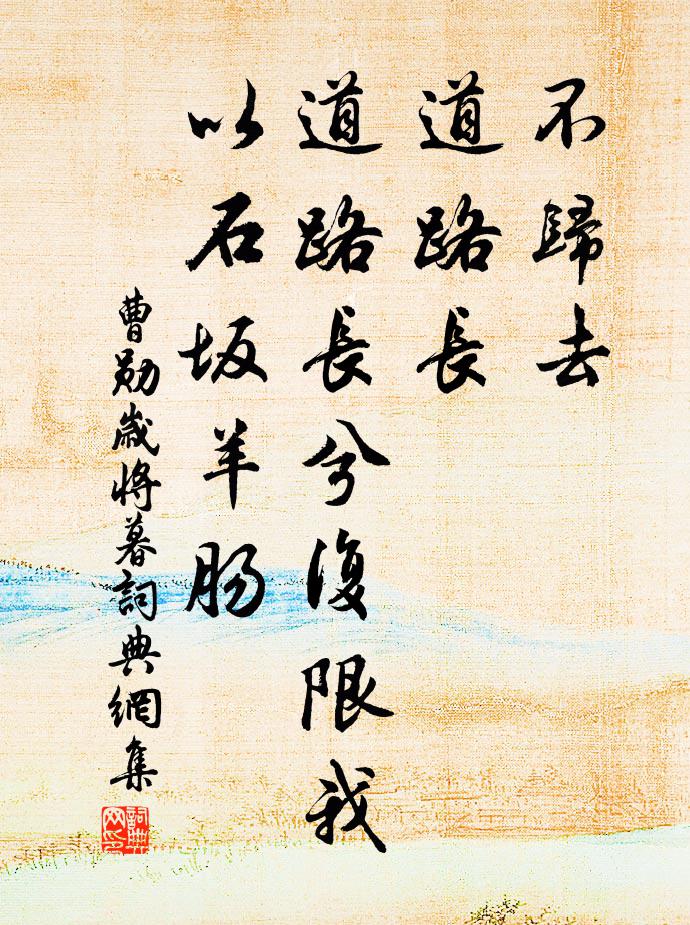 不歸去
道路長
道路長兮復限我
以石坂羊肠
曹勛歲將暮詞典網集
詞典
网印